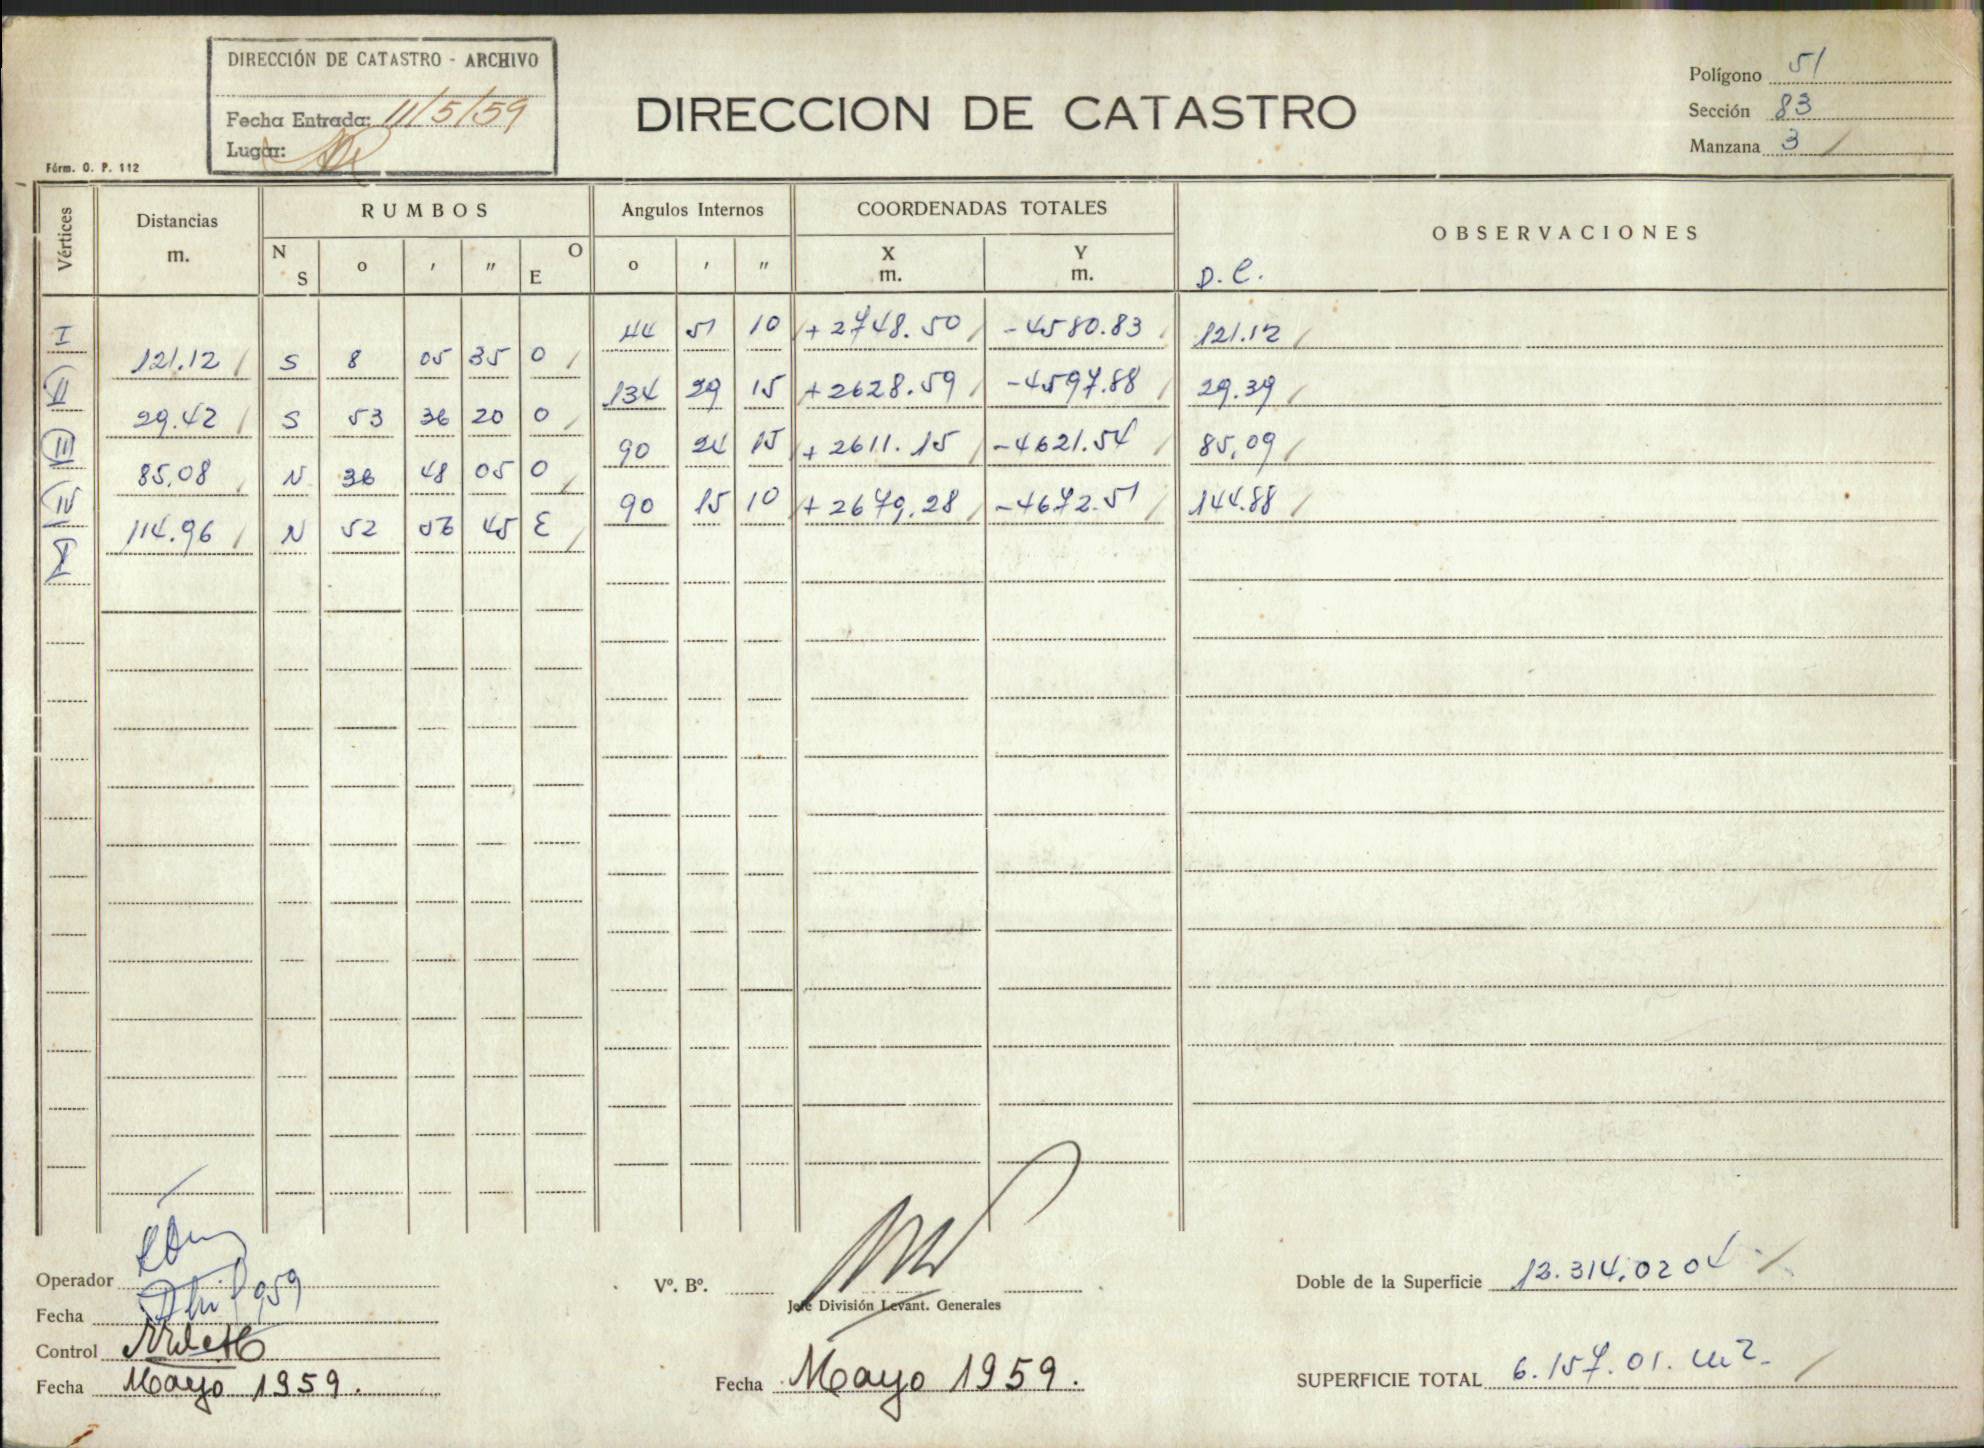 DIRECCIÓN DE CATASTRO - ARCHIVO
Fecha Entrada: 11/5/59
Lugar:
Fórm. O. P. 112
DIRECCION DE CATASTRO
Polígono 51
Sección 83
Manzana 3 /
Vértices
Distancias
m.
RUMBOS
N S
o
,
"
O E
Angulos Internos
o
,
"
COORDENADAS TOTALES
X
m.
Y
m.
OBSERVACIONES
D. C.
I 44 51 10 +2748.50 / -4580.83 / 121.12 /
121.12 / S 8 05 35 O /
II 134 29 15 +2628.59 / -4597.88 / 29.39 /
29.42 / S 53 36 20 O /
III 90 24 15 +2611.15 / -4621.54 / 85,09 /
85,08 / N 36 48 05 O /
IV 90 15 10 +2679,28 / -4672.51 / 144.88 /
114.96 / N 52 56 45 E /
I
Operador
Fecha Abril 959
Control
Fecha Mayo 1959.
Vº. Bº.
Jefe División Levant. Generales
Fecha Mayo 1959.
Doble de la Superficie 12.314,0204 /
SUPERFICIE TOTAL 6.157.01. m2. /